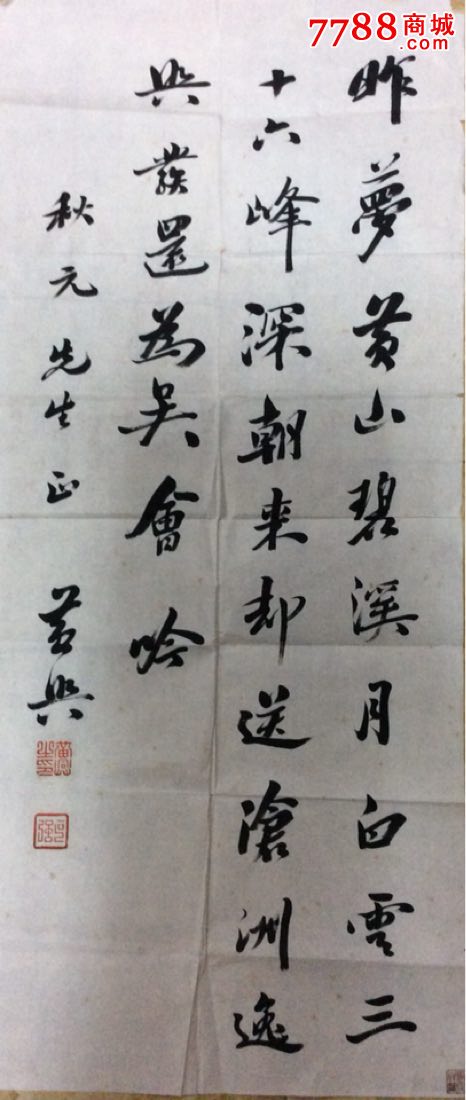 7788商城
.com
昨夢黄山碧溪月白雲三
十六峰深朝来却送滄洲逸
興發還為吴會吟
秋元先生正
黄興